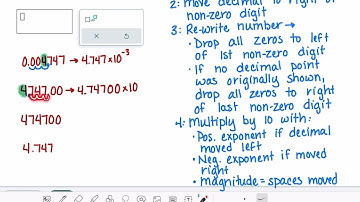 2: Move decimal to right of
non-zero digit
3: Re-write number →
• Drop all zeros to left
of 1st non-zero digit
• If no decimal point
was originally shown,
drop all zeros to right
of last non-zero digit
4: Multiply by 10 with:
• Pos. exponent if decimal
moved left
• Neg. exponent if moved
right
• Magnitude = spaces moved
0.004747 → 4.747 × 10⁻³
4747.00 → 4.74700 × 10
474700
4.747